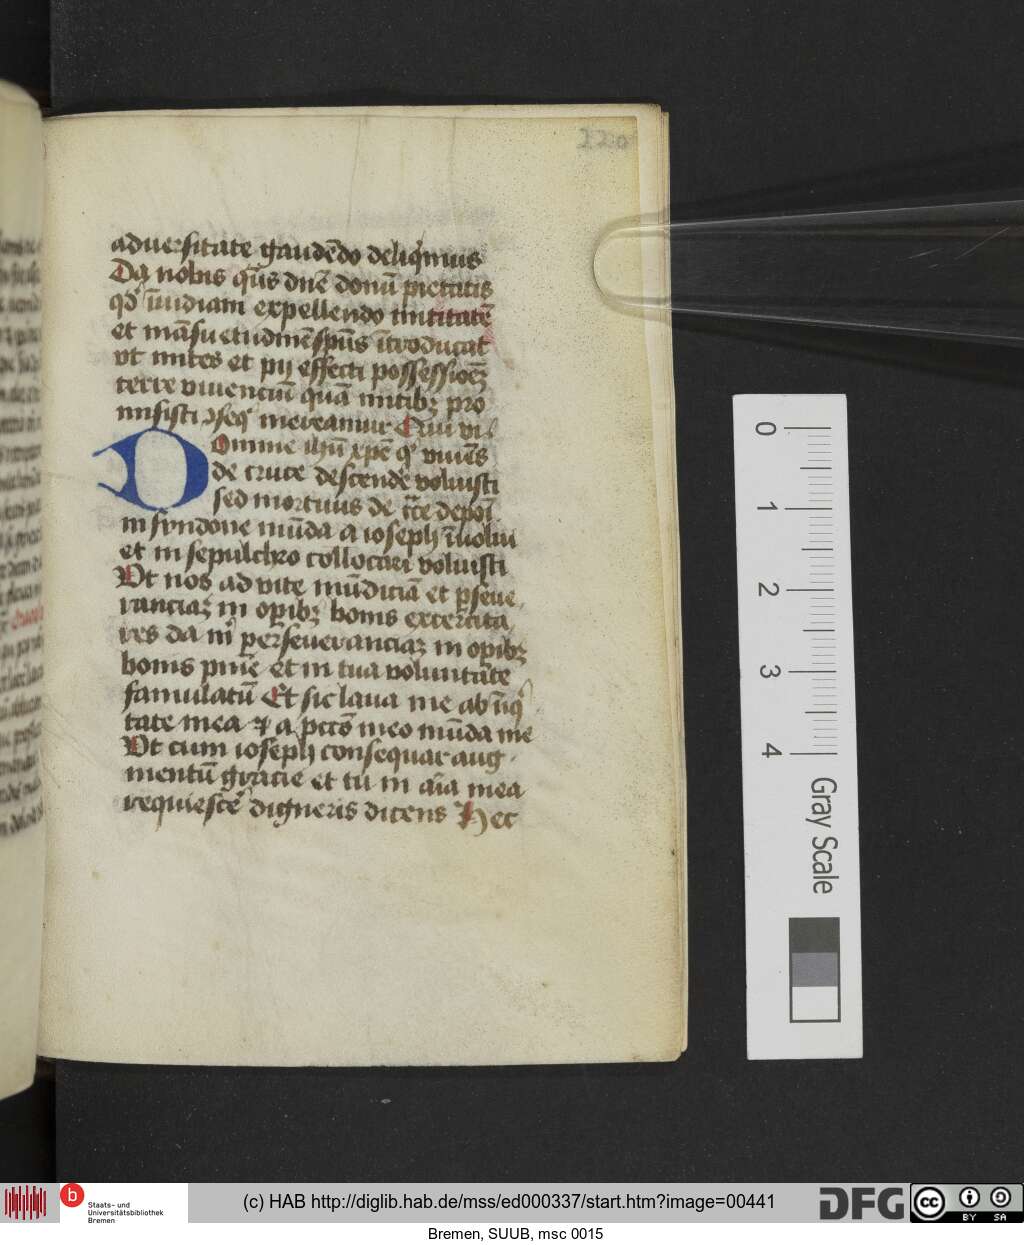 220
aduersitate gaudēdo deliqͥmus
Da nobis qͣs dn̄e donū pietatis
qd̓ īuidiam expellendo imitatē
et māsuetudinē spūs ītroducat
vt mites et pij effecti possessioēz
terre viuenciū quā mitibꝫ pro
misisti ꝯseqͥ mereamur Qui vi
Domine ihū xpē qͥ viuēs
de cruce descende̓ voluisti
sed mortuus de cͬce depoī
in syndone mūda a ioseph īuolui
et in sepulchro collocari voluisti
Vt nos ad vite mūdiciā et ꝑseue
ranciaꝫ in oꝑibꝫ bonis exercita
res da mͥ perseueranciaꝫ in oꝑibꝫ
bonis pmīe et in tua voluntate
famulatū Et sic laua me ab īiqͥ
tate mea ⁊ a pccō meo mūda me
Vt cum ioseph consequar aug
mentū gracie et tu in aīa mea
requiesce̓ digneris dicens Hec
0
1
2
3
4
Gray Scale
b Staats- und
Universitätsbibliothek
Bremen
(c) HAB http://diglib.hab.de/mss/ed000337/start.htm?image=00441
DFG
cc BY SA
Bremen, SUUB, msc 0015